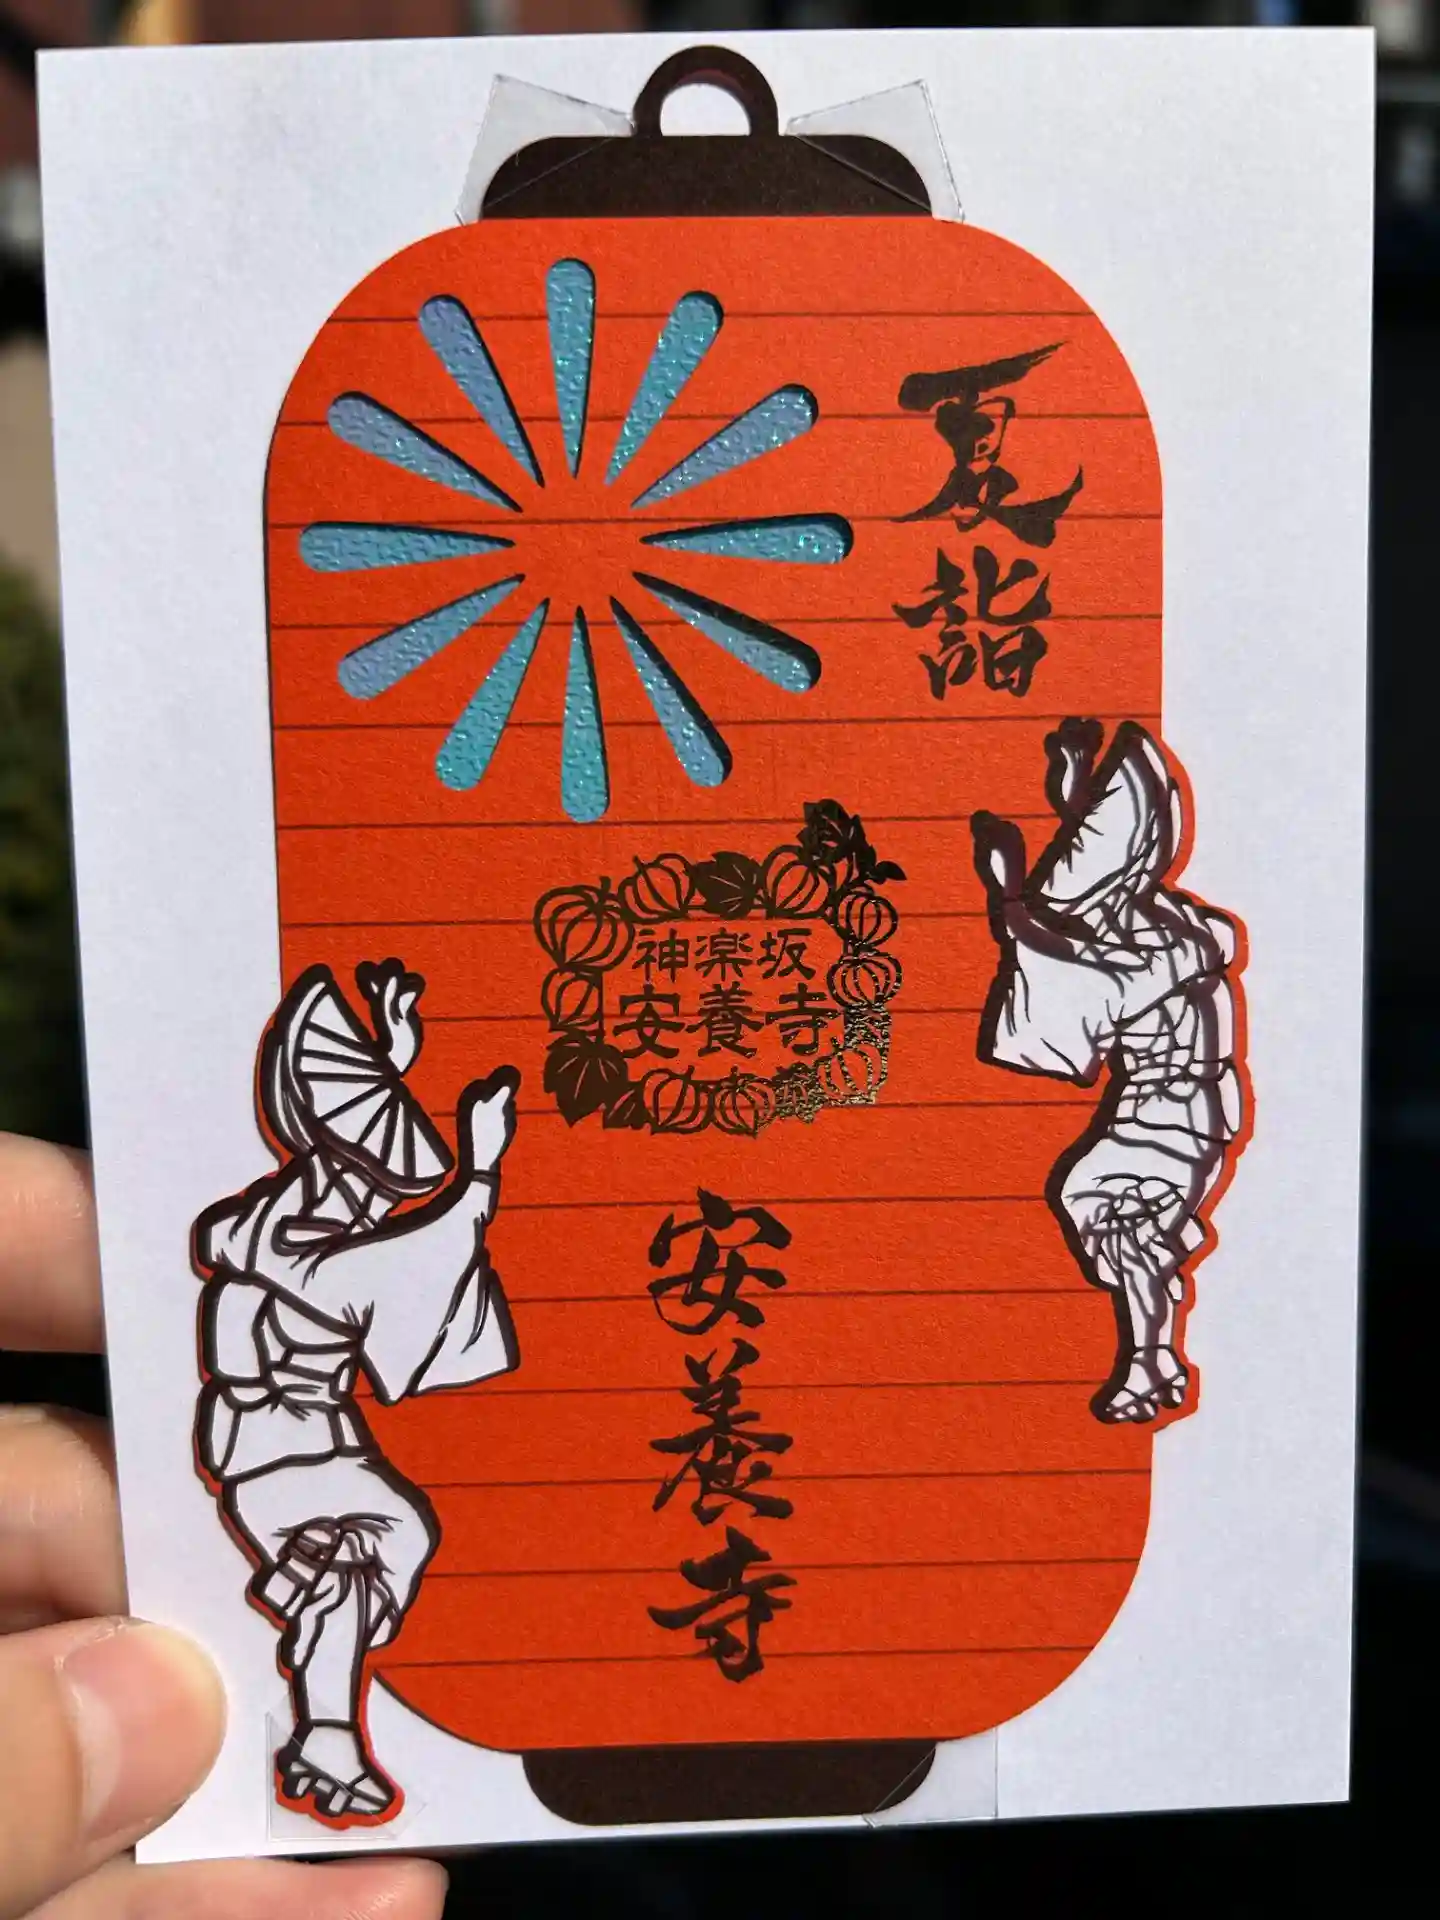 夏詣
神楽坂
安養寺
安養寺